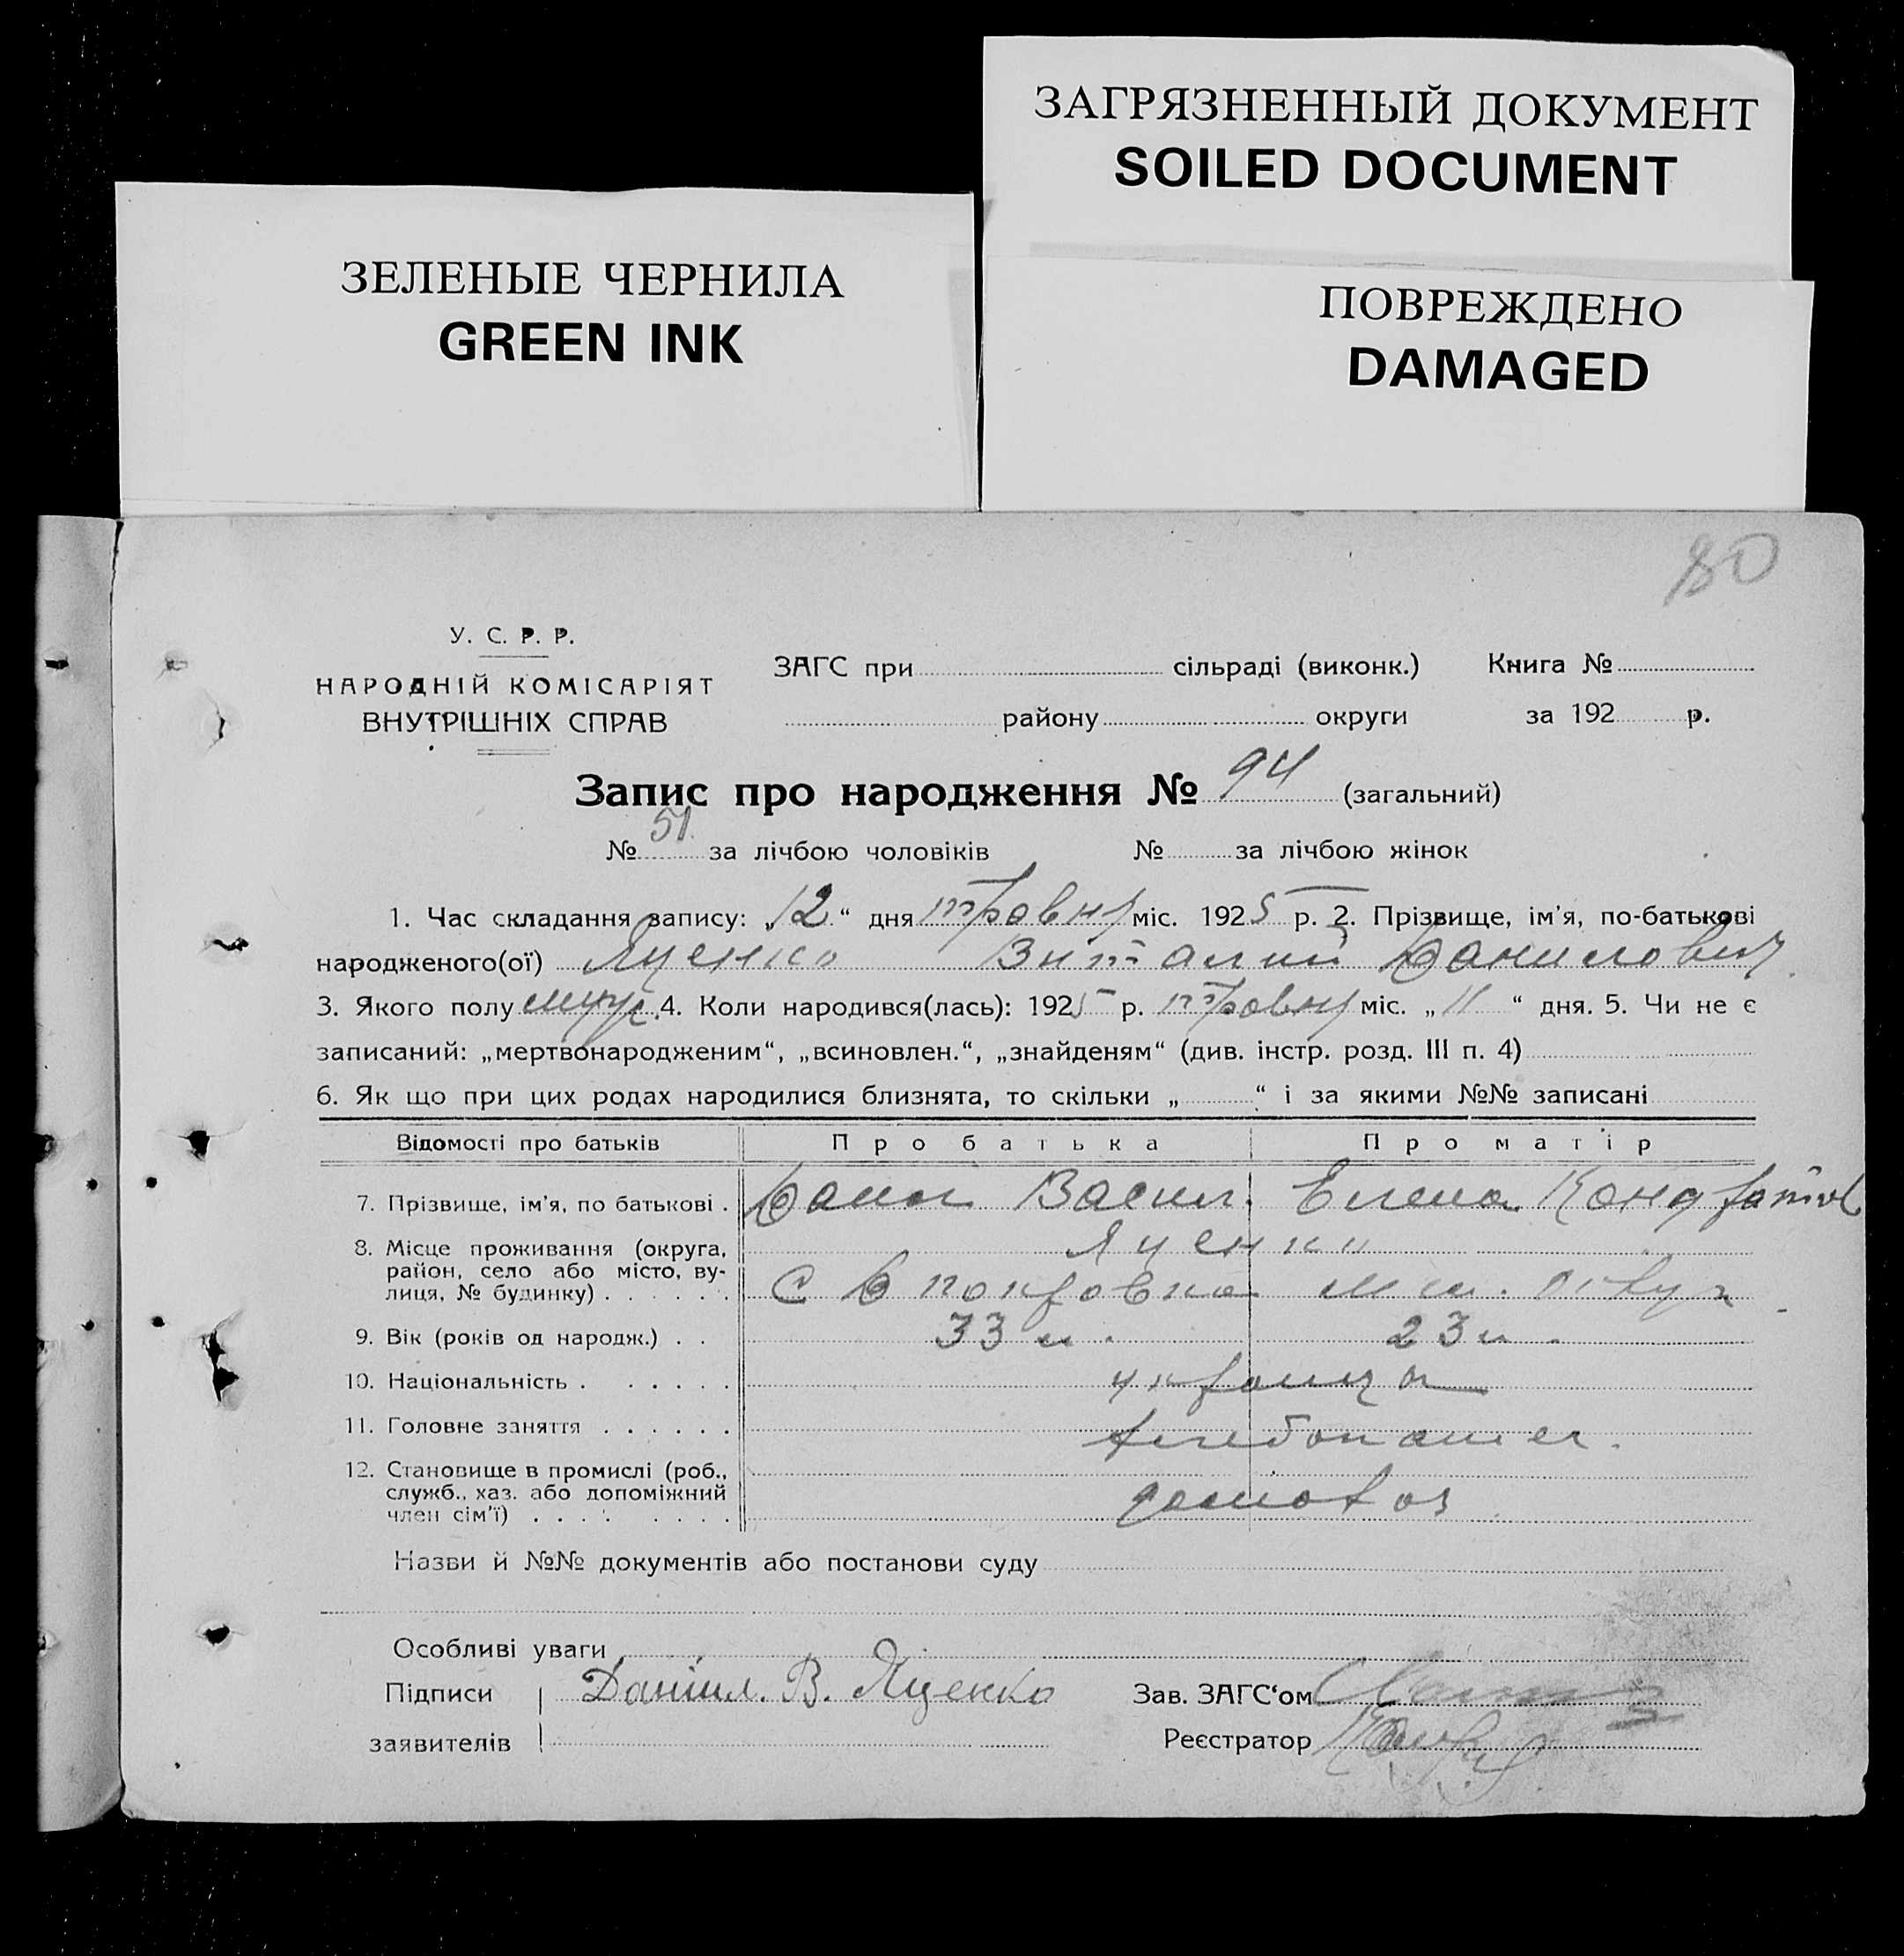 ЗАГРЯЗНЕННЫЙ ДОКУМЕНТ
SOILED DOCUMENT
ЗЕЛЕНЫЕ ЧЕРНИЛА
GREEN INK
ПОВРЕЖДЕНО
DAMAGED
80
У. С. Р. Р.
НАРОДНІЙ КОМІСАРІЯТ
ВНУТРІШНІХ СПРАВ
ЗАГС при сільраді (виконк.) Книга №
району округи за 192 р.
Запис про народження № 94 (загальний)
№ 51 за лічбою чоловіків № за лічбою жінок
1. Час складання запису: „12“ дня травня міс. 1925 р. 2. Прізвище, ім'я, по-батькові
народженого(ої) Яценко Виталий Данилович
3. Якого полу муж. 4. Коли народився(лась): 1925 р. травня міс. „11“ дня. 5. Чи не є
записаний: „мертвонародженим“, „всиновлен.“, „знайденям“ (див. інстр. розд. III п. 4)
6. Як що при цих родах народилися близнята, то скільки „ “ і за якими №№ записані
Відомості про батьків Про батька Про матір
7. Прізвище, ім'я, по батькові . Данил Васил. Елена Кондратов
Яценко
8. Місце проживання (округа,
район, село або місто, ву-
лиця, № будинку) . . . . . . С покровка
9. Вік (років од народж.) . . 33 л. 23 л.
10. Національність . . . . . . украинц
11. Головне заняття . . . . . . хлебопашец.
12. Становище в промислі (роб.,
служб., хаз. або допоміжний
член сім'ї) . . . . . . . .
Назви й №№ документів або постанови суду
Особливі уваги
Підписи Даниил. В. Яценко Зав. ЗАГС‘ом
заявителів Реєстратор